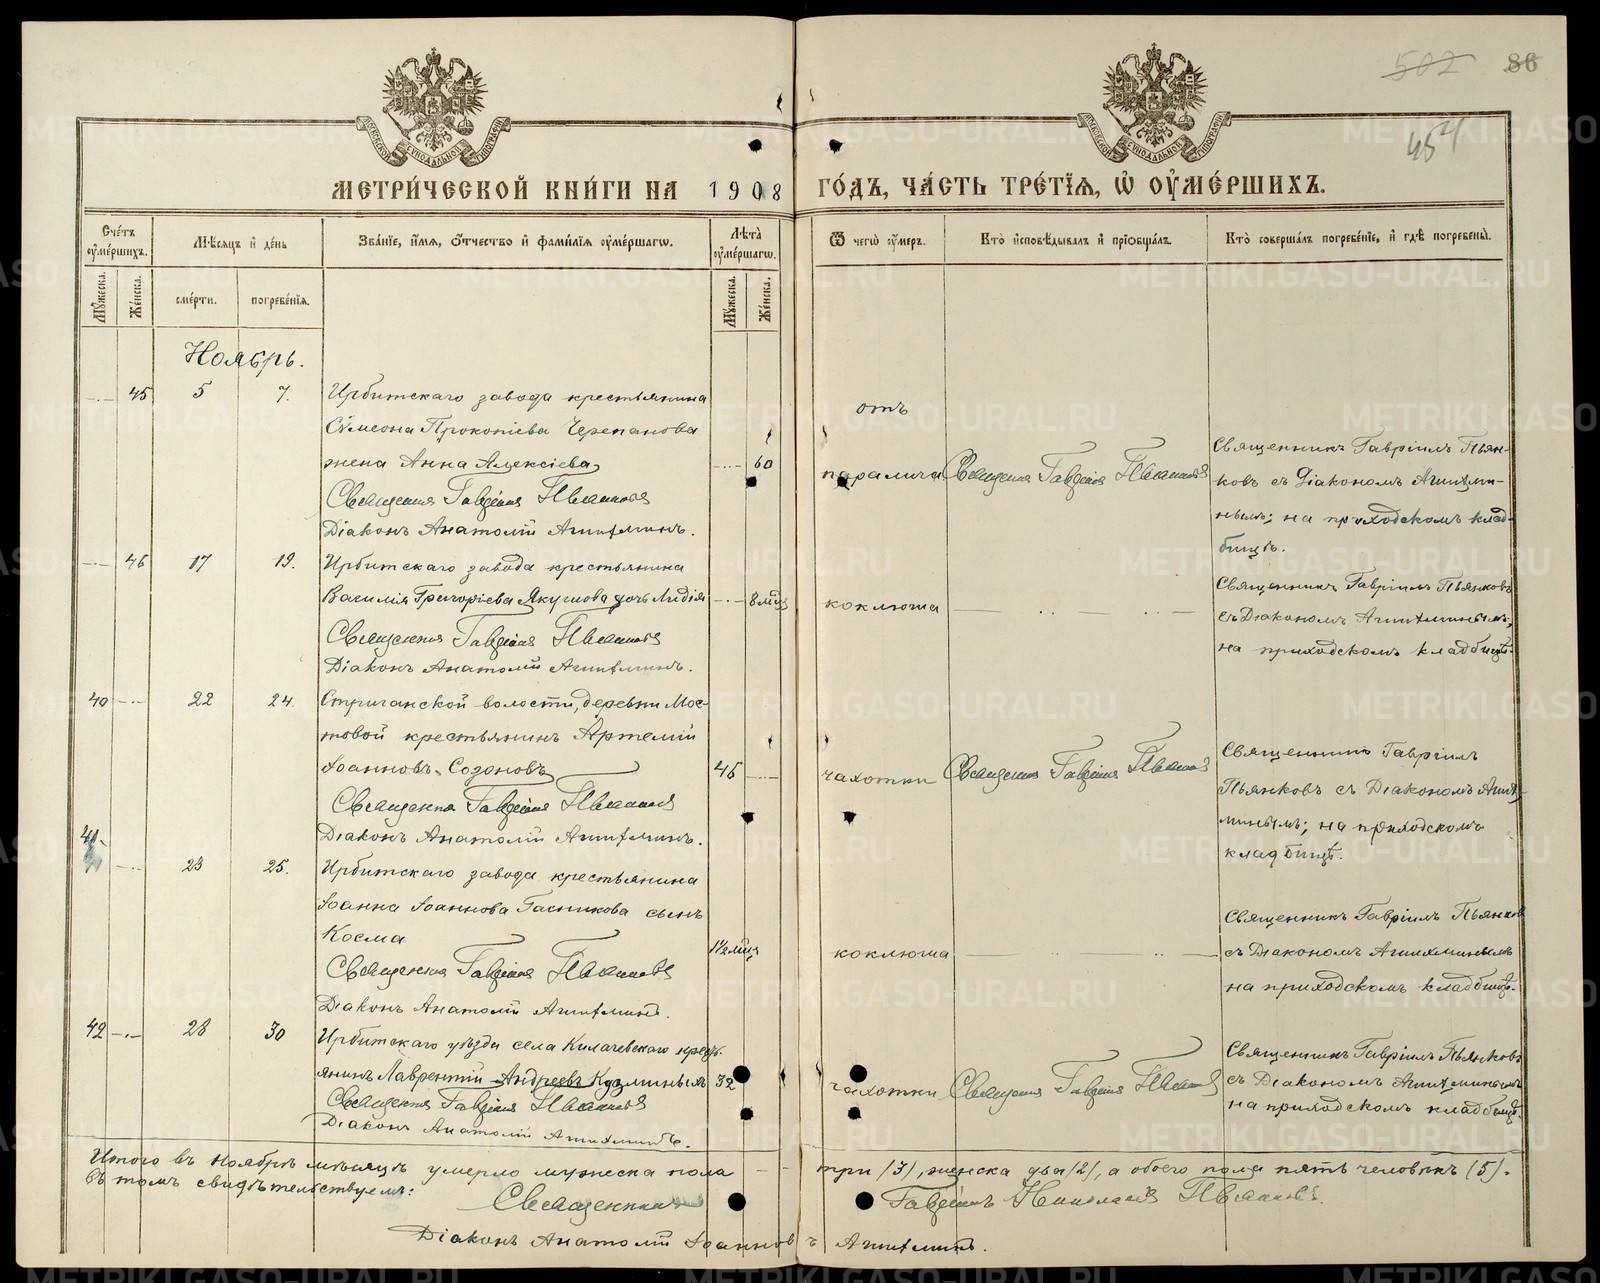 502 86
454
МЕТРИ́ЧЕСКОЙ КНИ́ГИ НА 1908 ГО́ДЪ, ЧА́СТЬ ТРЕ́ТІЯ, Ѡ ОУМЕ́РШИХЪ.
Сче́тъ оуме́ршихъ. Мѣсяцъ и де́нь Зва́ніе, и́мя, о́тчество и фами́лія оуме́ршагѡ. Лѣта̀ оуме́ршагѡ. Ѿ чегѡ̀ оу́меръ. Кто̀ исповѣ́дывалъ и пріобща́лъ. Кто̀ соверша́лъ погребе́ніе, и гдѣ̀ погребены̀.
Му́жеска. Же́нска. сме́рти. погребе́нія. Му́жеска. Же́нска.
Ноябрь.
45 5 7. Ирбитскаго завода крестьянина
Сѵмеона Прокопіева Черепанова
жена Анна Алексіева 60
Священникъ Гавріилъ Пьянковъ
Діаконъ Анатолій Агитиминъ.
отъ
паралича Священникъ Гавріилъ Пьянковъ
Священникъ Гавріилъ Пьян-
ковъ съ Діакономъ
на приходскомъ клад-
бищѣ.
46 17 19. Ирбитскаго завода крестьянина
Василія Григоріева Якушова дочь Лидія 8 мѣц
Священникъ Гавріилъ Пьянковъ
Діаконъ Анатолій
коклюша
Священникъ Гавріилъ Пьянковъ
съ Діакономъ
на приходскомъ кладбищѣ.
40 22 24. Стриганской волости, деревни Мос-
товой крестьянинъ Артемій
Іоанновъ Созоновъ 45
Священникъ Гавріилъ Пьянковъ
Діаконъ Анатолій
чахотки Священникъ Гавріилъ Пьянковъ
Священникъ Гавріилъ
Пьянковъ съ Діакономъ
на приходскомъ
кладбищѣ.
41. 23 25. Ирбитскаго завода крестьянина
Іоанна Іоаннова сынъ
Косма 1½ мѣц
Священникъ Гавріилъ Пьянковъ
Діаконъ Анатолій
коклюша
Священникъ Гавріилъ Пьянковъ
съ Діакономъ
на приходскомъ кладбищѣ.
42 28 30 Ирбитскаго уѣзда села Килачевскаго крест-
янинъ Лаврентій Андреевъ Кузминыхъ 32
Священникъ Гавріилъ Пьянковъ
Діаконъ Анатолій
чахотки Священникъ Гавріилъ Пьянковъ
Священникъ Гавріилъ Пьянковъ
съ Діакономъ
на приходскомъ кладбищѣ.
Итого въ ноябрѣ мѣсяцѣ умерло мужеска пола три (3), женска два (2), а обоего пола пять человѣкъ (5).
Въ томъ свидѣтельствуемъ:
Священникъ Гавріилъ Николаевъ Пьянковъ.
Діаконъ Анатолій Іоанновъ
METRIKI.GASO-URAL.RU